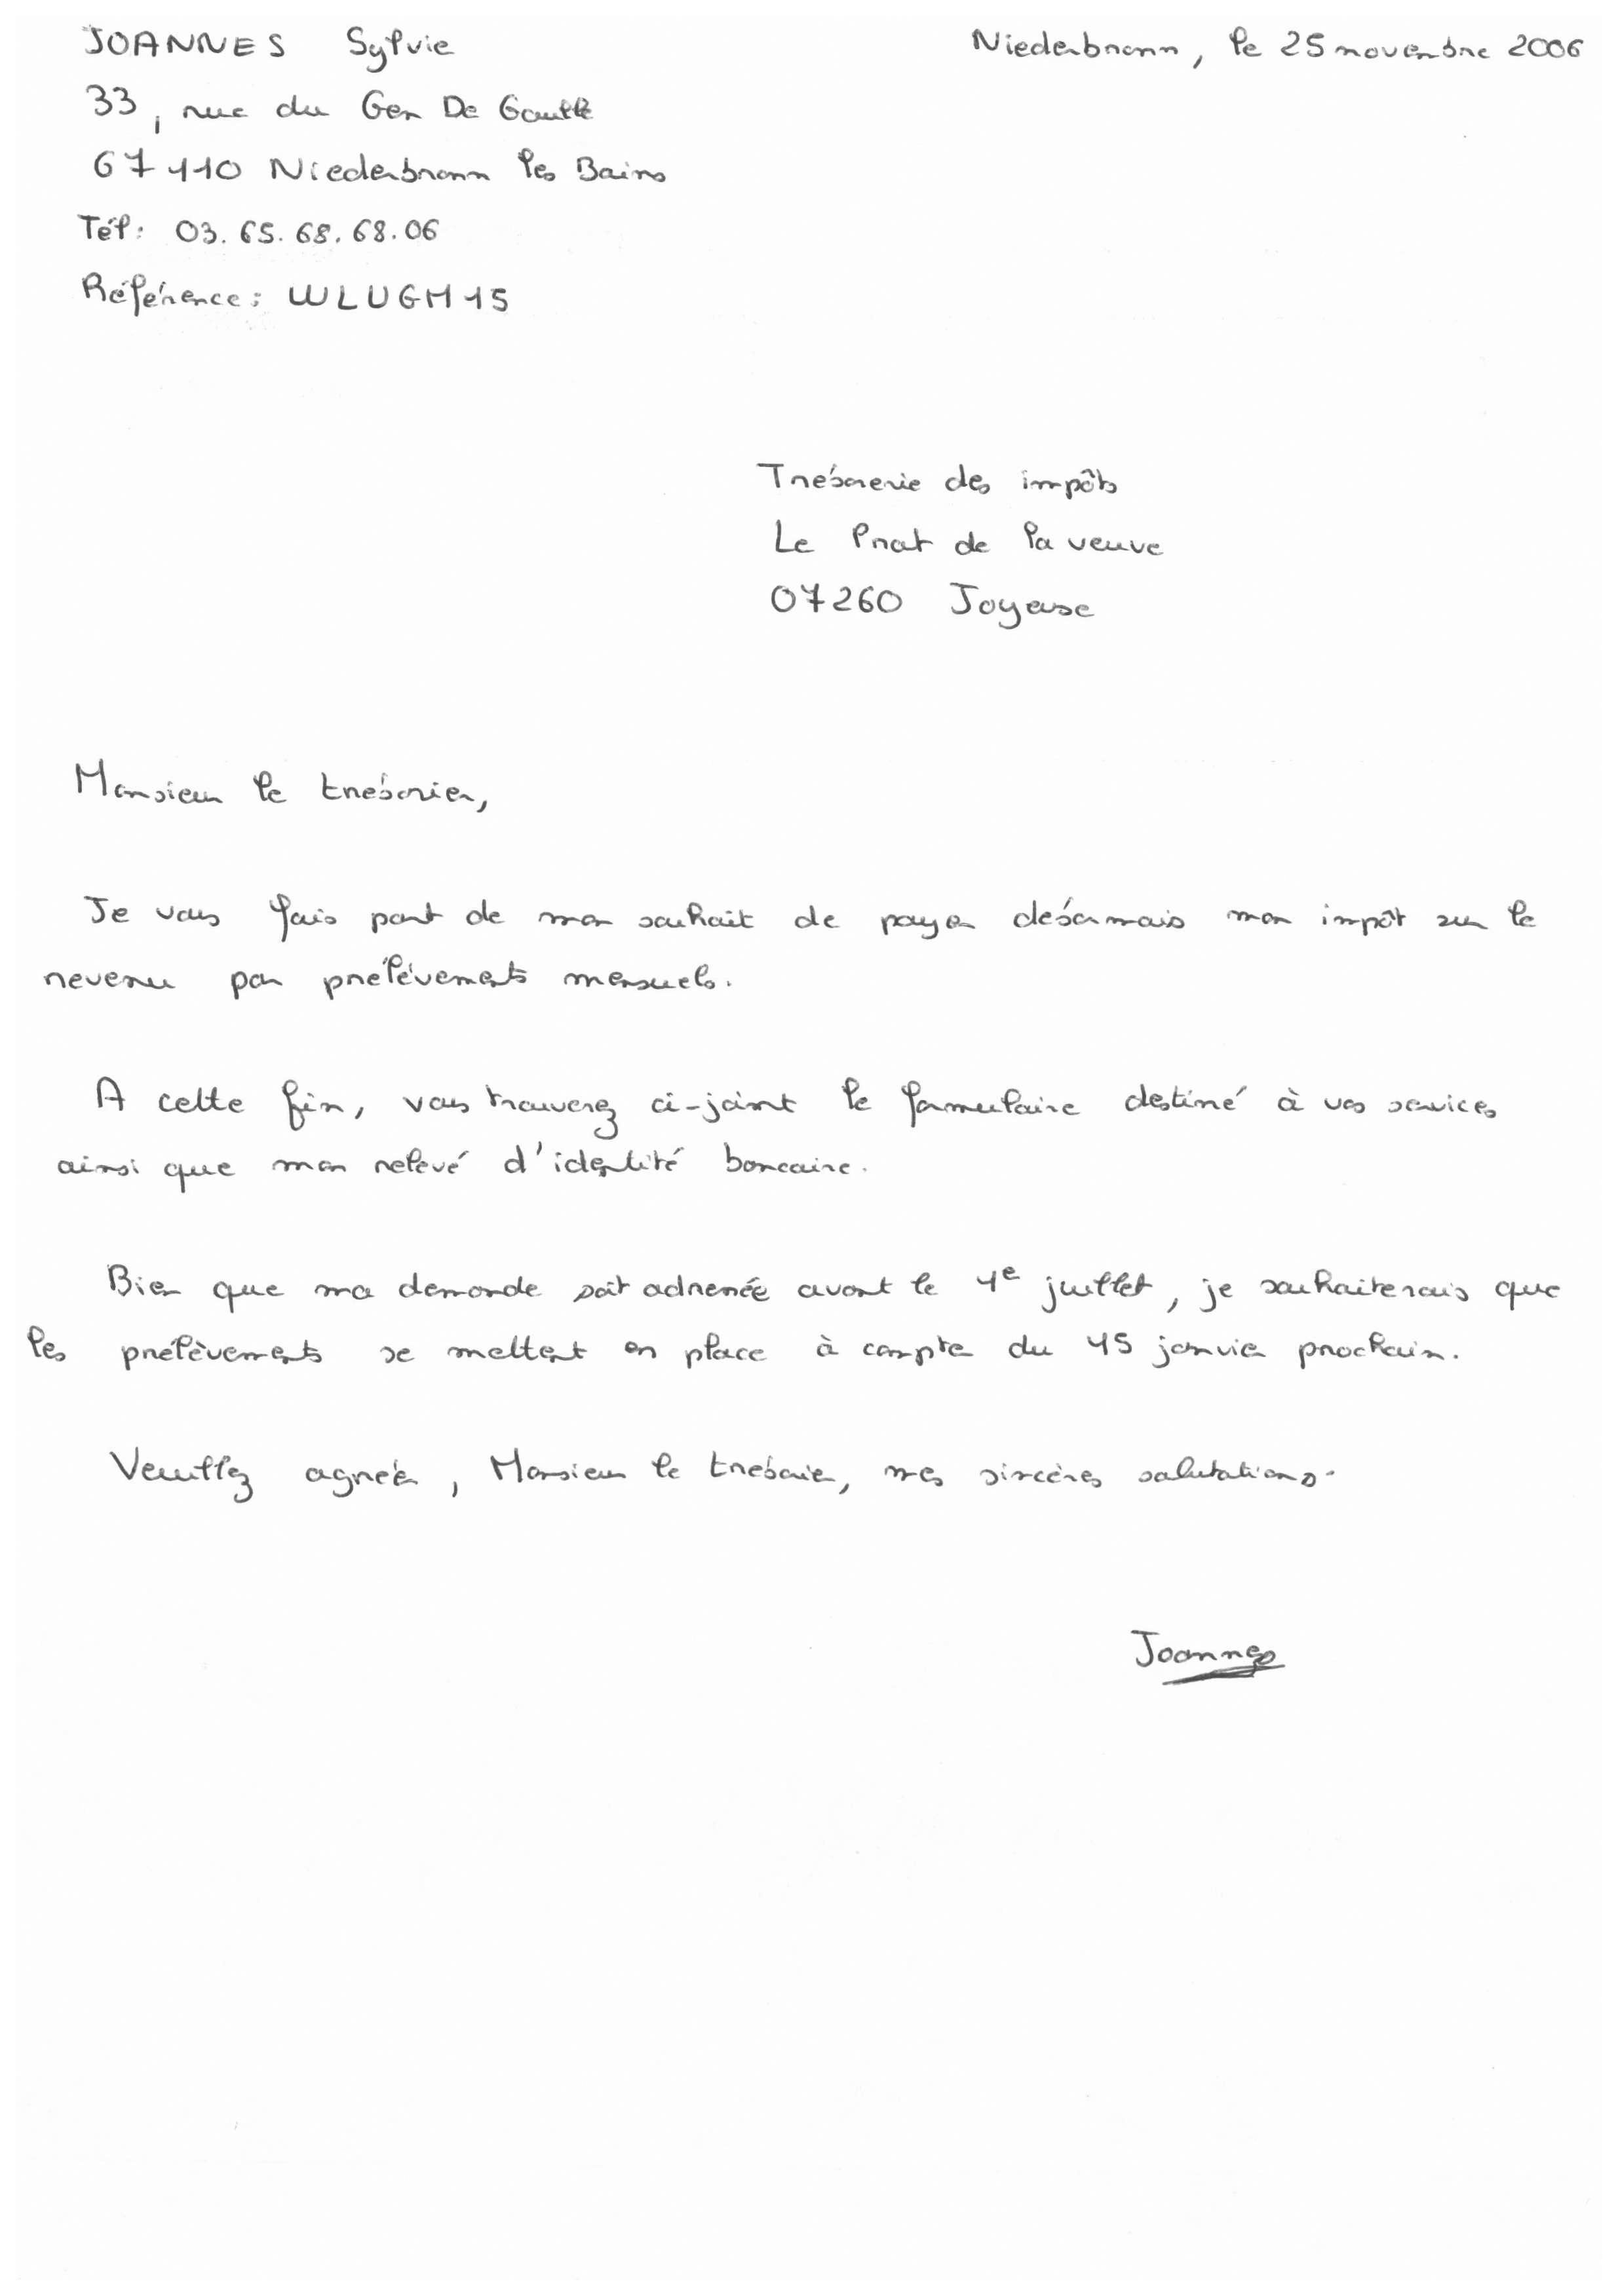 JOANNES Sylvie
Niederbronn, le 25 novembre 2006
33, rue du Gen De Gaulle
67110 Niederbronn les Bains
Tél: 03.65.68.68.06
Référence: WLUGM15
Trésorerie des impôts
Le Prat de la veuve
07260 Joyeuse
Monsieur le trésorier,
Je vous fais part de mon souhait de payer désormais mon impôt sur le
revenu par prélèvements mensuels.
A cette fin, vous trouverez ci-joint le formulaire destiné à vos services
ainsi que mon relevé d'identité bancaire.
Bien que ma demande soit adressée avant le 1e juillet, je souhaiterais que
les prélèvements se mettent en place à compter du 15 janvier prochain.
Veuillez agréer, Monsieur le trésorier, mes sincères salutations.
Joannes